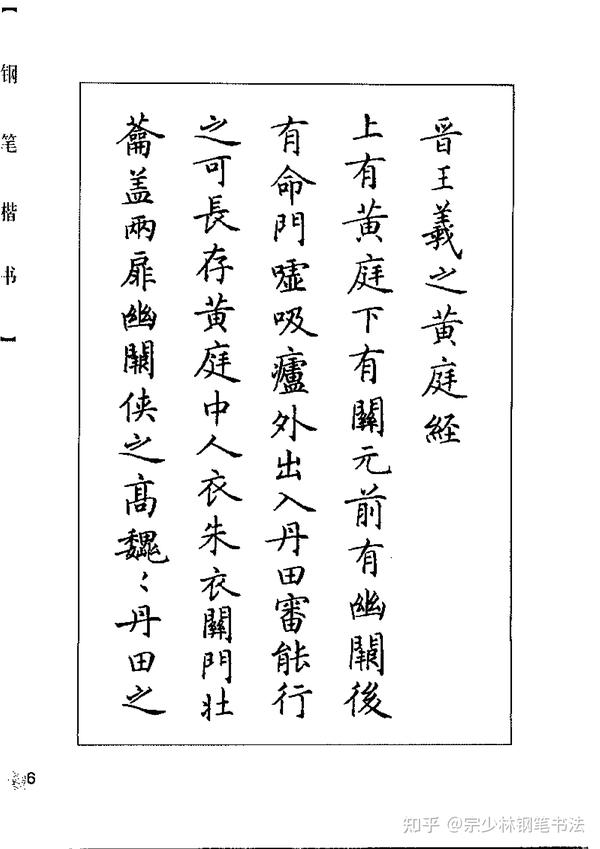 【钢笔楷书】
晋王羲之黄庭經
上有黄庭下有關元前有幽關後
有命門嘘吸廬外出入丹田審能行
之可長存黄庭中人衣朱衣關門壮
蘥盖兩扉幽關侠之高魏〻丹田之
6
知乎 @宗少林钢笔书法